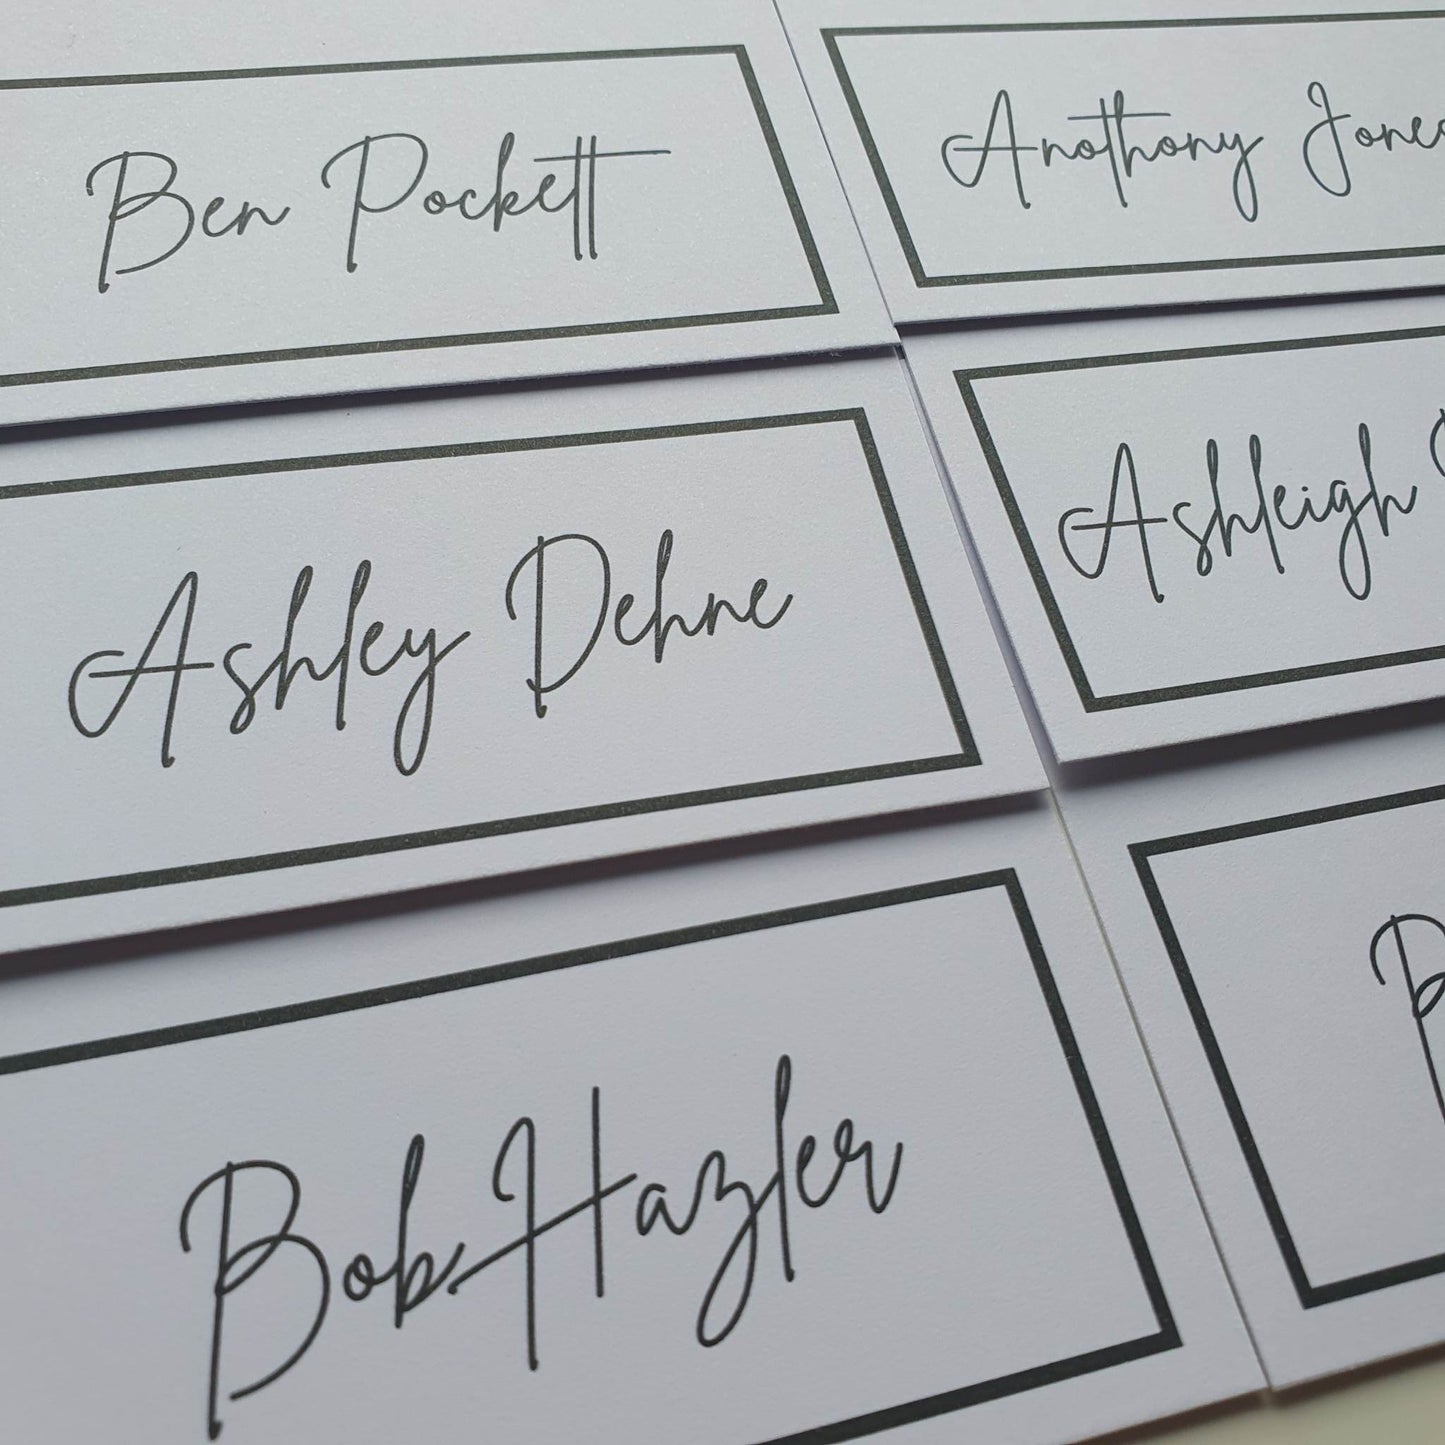 Ben Pockett
Anothony Jones
Ashley Dehne
Ashleigh
Bob Hazler
B